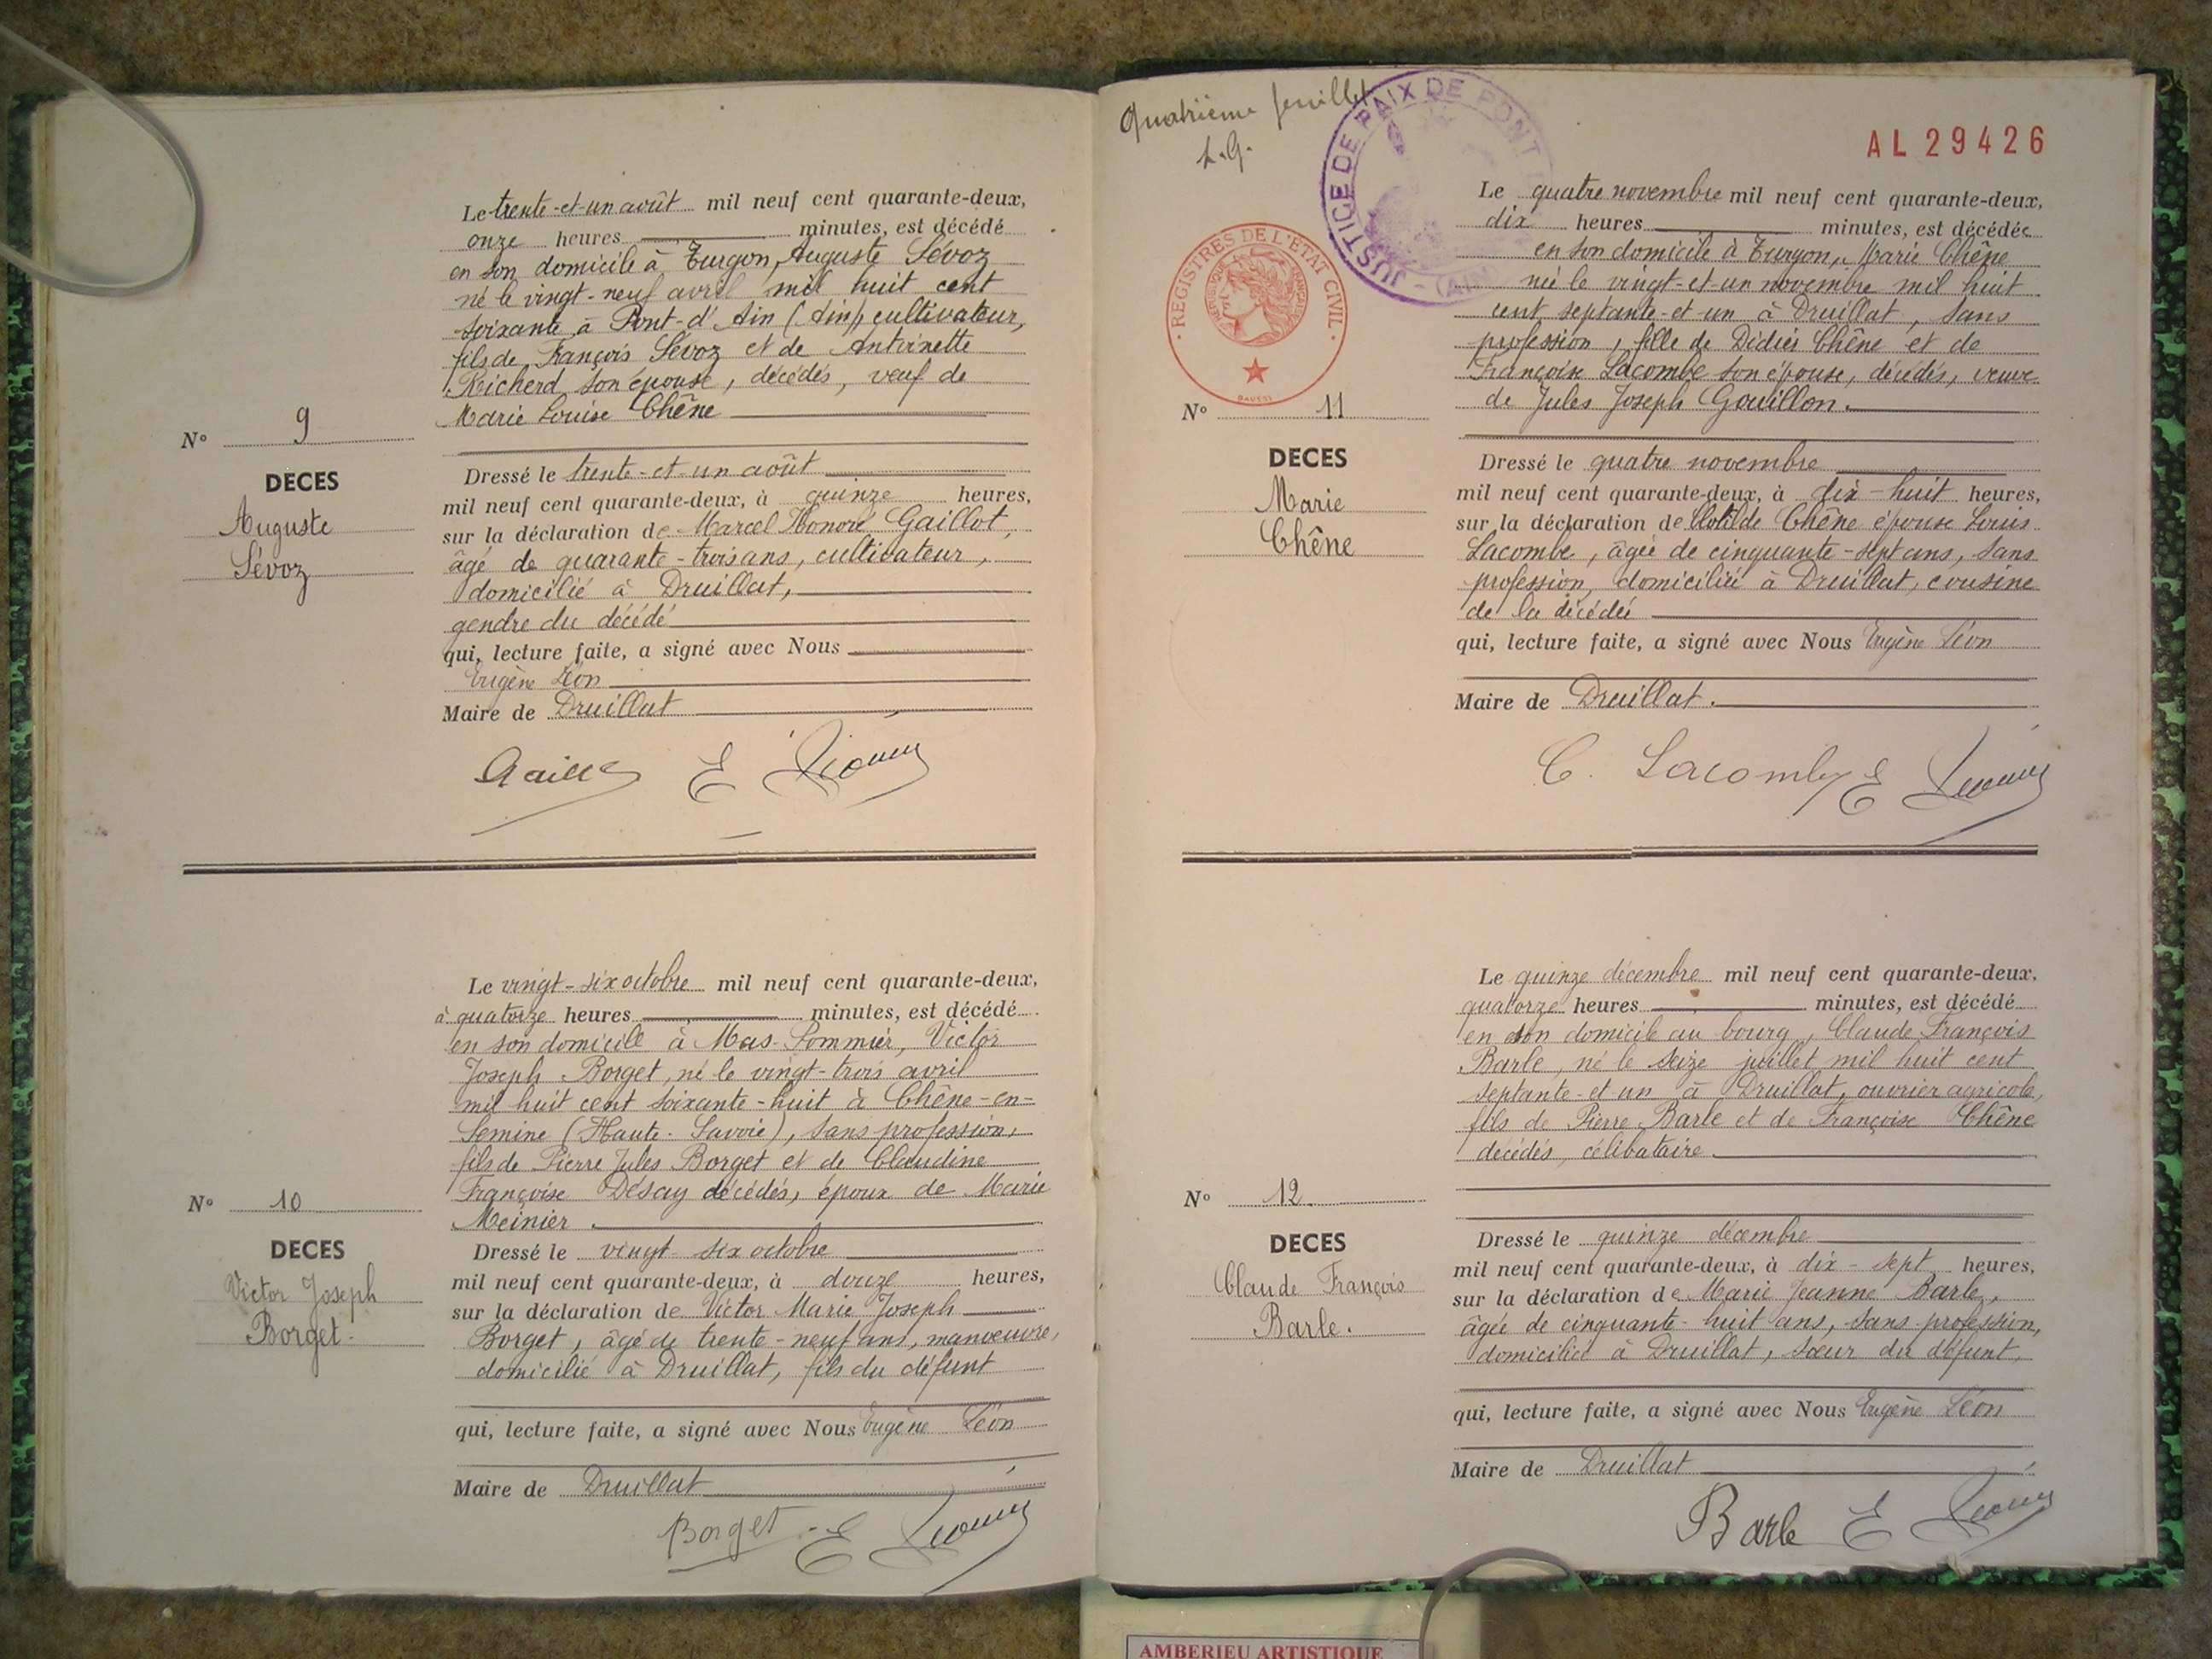 Le trente-et-un août mil neuf cent quarante-deux,
onze heures minutes, est décédé
en son domicile à Turgon, Auguste Sévoz
né le vingt-neuf avril mil huit cent
soixante à Pont-d'Ain (Ain), cultivateur,
fils de François Sévoz et de Antoinette
Reicherd son épouse, décédés, veuf de
Marie Louise Chêne
N° 9
DECES
Auguste
Sévoz
Dressé le trente-et-un août
mil neuf cent quarante-deux, à quinze heures,
sur la déclaration de Marcel Honoré Gaillot,
âgé de quarante-trois ans, cultivateur,
domicilié à Druillat,
gendre du décédé
qui, lecture faite, a signé avec Nous
Eugène Léon
Maire de Druillat
E
Le vingt-six octobre mil neuf cent quarante-deux,
à quatorze heures minutes, est décédé
en son domicile à Mas-Pommier, Victor
Joseph Borget, né le vingt-trois avril
mil huit cent soixante-huit à Chêne-en-
Semine (Haute-Savoie), sans profession,
fils de Pierre Jules Borget et de Claudine
Françoise Désay décédés, époux de Marie
Meinier.
N° 10
DECES
Victor Joseph
Borget.
Dressé le vingt-six octobre
mil neuf cent quarante-deux, à douze heures,
sur la déclaration de Victor Marie Joseph
Borget, âgé de trente-neuf ans, manœuvre,
domicilié à Druillat, fils du défunt
qui, lecture faite, a signé avec Nous Eugène Léon
Maire de Druillat
Borget E
Quatrième feuillet
L.G.
JUSTICE DE PAIX DE PONT (AIN)
AL 29426
REGISTRES DE L'ETAT CIVIL
Le quatre novembre mil neuf cent quarante-deux,
dix heures minutes, est décédée
en son domicile à Turgon, Marie Chêne
née le vingt-et-un novembre mil huit
cent septante-et-un à Druillat, sans
profession, fille de Didier Chêne et de
Françoise Lacombe son épouse, décédés, veuve
de Jules Joseph Gouillon.
N° 11
DECES
Marie
Chêne
Dressé le quatre novembre
mil neuf cent quarante-deux, à dix-huit heures,
sur la déclaration de Clotilde Chêne épouse Louis
Lacombe, âgée de cinquante-sept ans, sans
profession, domiciliée à Druillat, cousine
de la décédée
qui, lecture faite, a signé avec Nous Eugène Léon
Maire de Druillat.
C. Lacombe E
Le quinze décembre mil neuf cent quarante-deux,
quatorze heures minutes, est décédé
en son domicile au bourg, Claude François
Barle, né le seize juillet mil huit cent
septante-et un à Druillat, ouvrier agricole,
fils de Pierre Barle et de Françoise Chêne
décédés, célibataire.
N° 12
DECES
Claude François
Barle.
Dressé le quinze décembre
mil neuf cent quarante-deux, à dix-sept heures,
sur la déclaration de Marie Jeanne Barle,
âgée de cinquante-huit ans, sans profession,
domiciliée à Druillat, sœur du défunt,
qui, lecture faite, a signé avec Nous Eugène Léon
Maire de Druillat
Barle E
AMBERIEU ARTISTIQUE